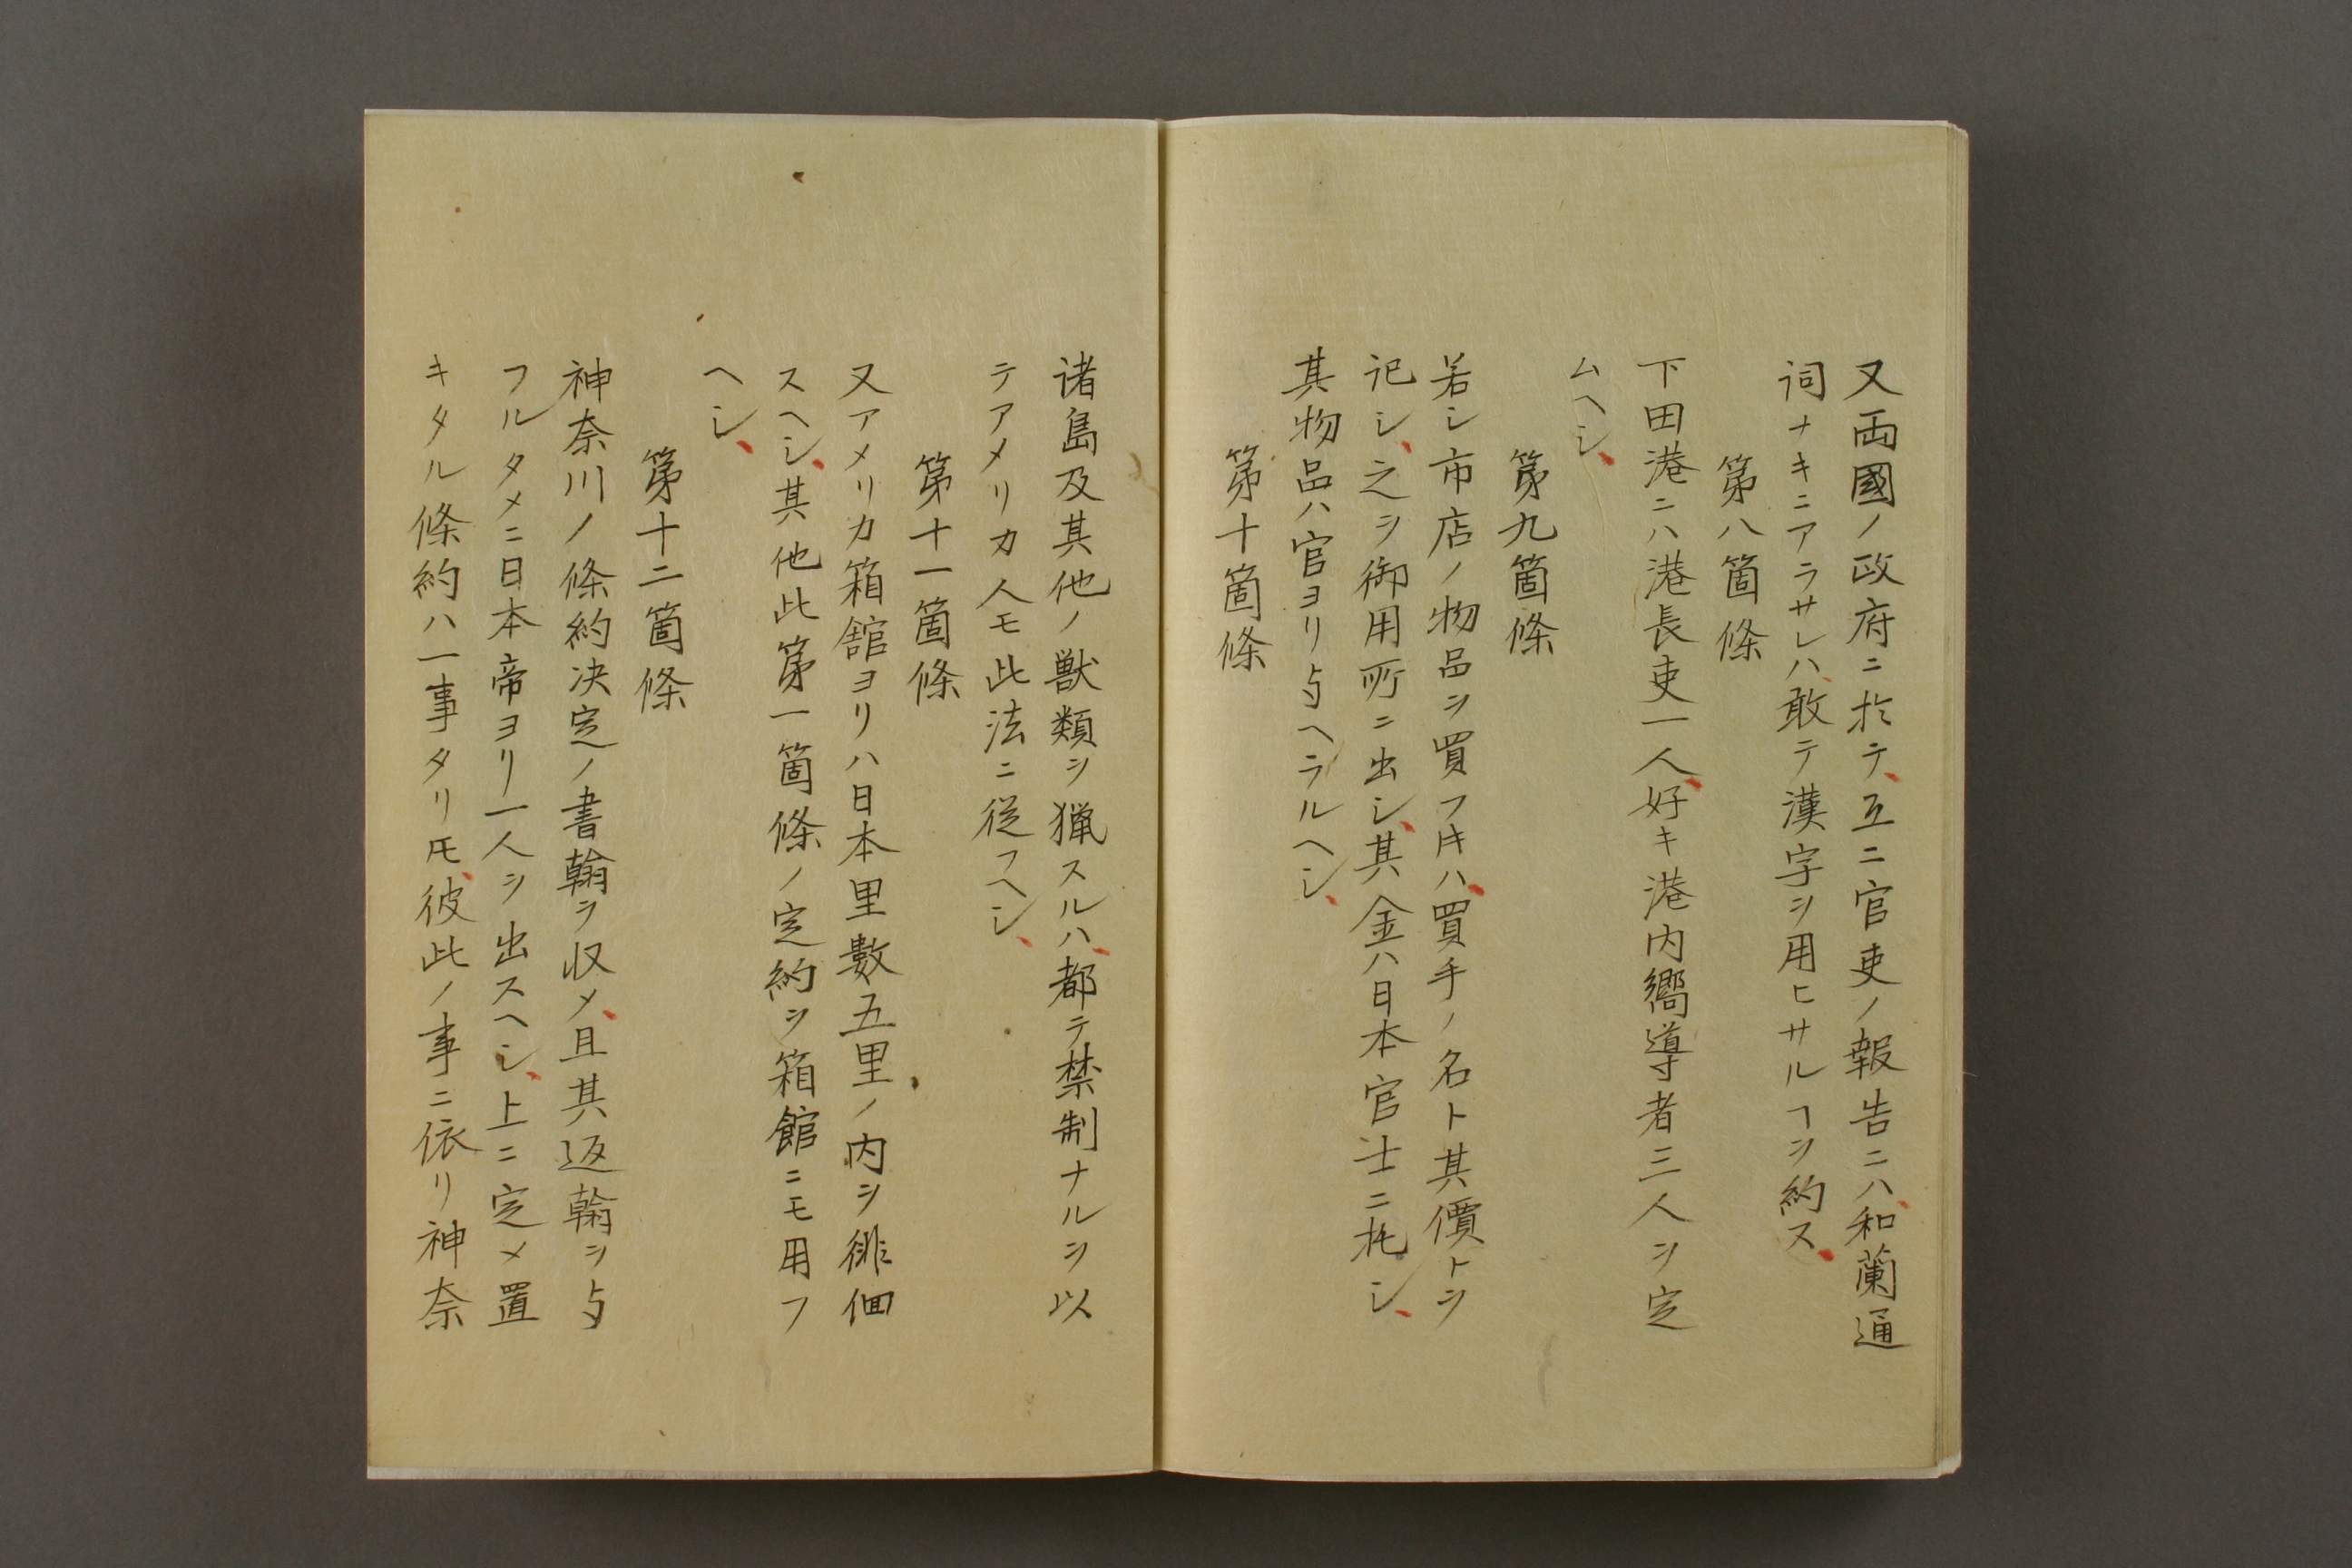 又両國ノ政府ニ於テ、互ニ官吏ノ報告ニハ、和蘭通
詞ナキニアラサレハ、敢テ漢字ヲ用ヒサルヿヲ約ス、
第八箇條
下田港ニハ港長吏一人、好キ港内嚮導者三人ヲ定
ムヘシ、
第九箇條
若シ市店ノ物品ヲ買フ𪜈ハ、買手ノ名ト其價トヲ
記シ、之ヲ御用所ニ出シ、其金ハ日本官士ニ托シ、
其物品ハ官ヨリ与ヘラルヘシ、
第十箇條
诸島及其他ノ獣類ヲ猟スルハ、都テ禁制ナルヲ以
テアメリカ人モ此法ニ從フヘシ、
第十一箇條
又アメリカ箱舘ヨリハ日本里數五里ノ内ヲ徘徊
スヘシ、其他此第一箇條ノ定約ヲ箱館ニモ用フ
ヘシ、
第十二箇條
神奈川ノ條約決定ノ書翰ヲ収メ、且其返翰ヲ与
フルタメニ日本帝ヨリ一人ヲ出スヘシ、上ニ定メ置
キタル條約ハ一事タリ𪜈、彼此ノ事ニ依リ神奈